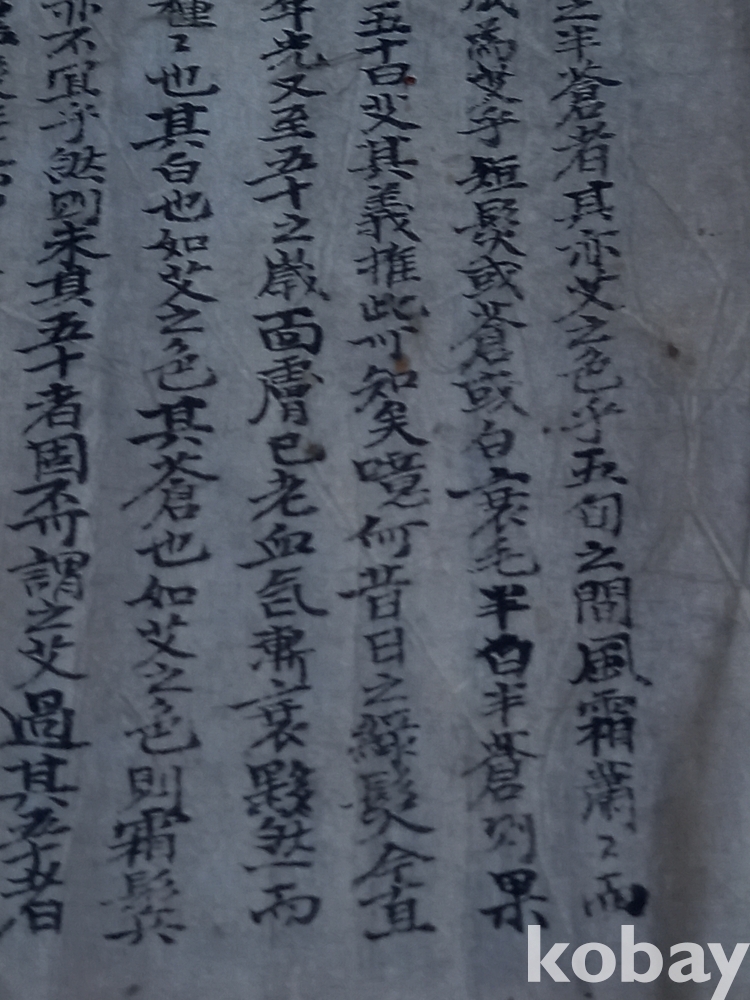 之半蒼者其亦艾之色乎五旬之間風霜蕭〻而
爲艾乎短髮或蒼或白衰毛半白半蒼則果
五十曰艾其義推此可知矣噫何昔日之綠髮今直
年光又至五十之歲面膚已老血气漸衰黟然而
種〻也其白也如艾之色其蒼也如艾之色則霜鬂
亦不宜乎然則未其五十者固不可謂之艾過其五十者
kobay